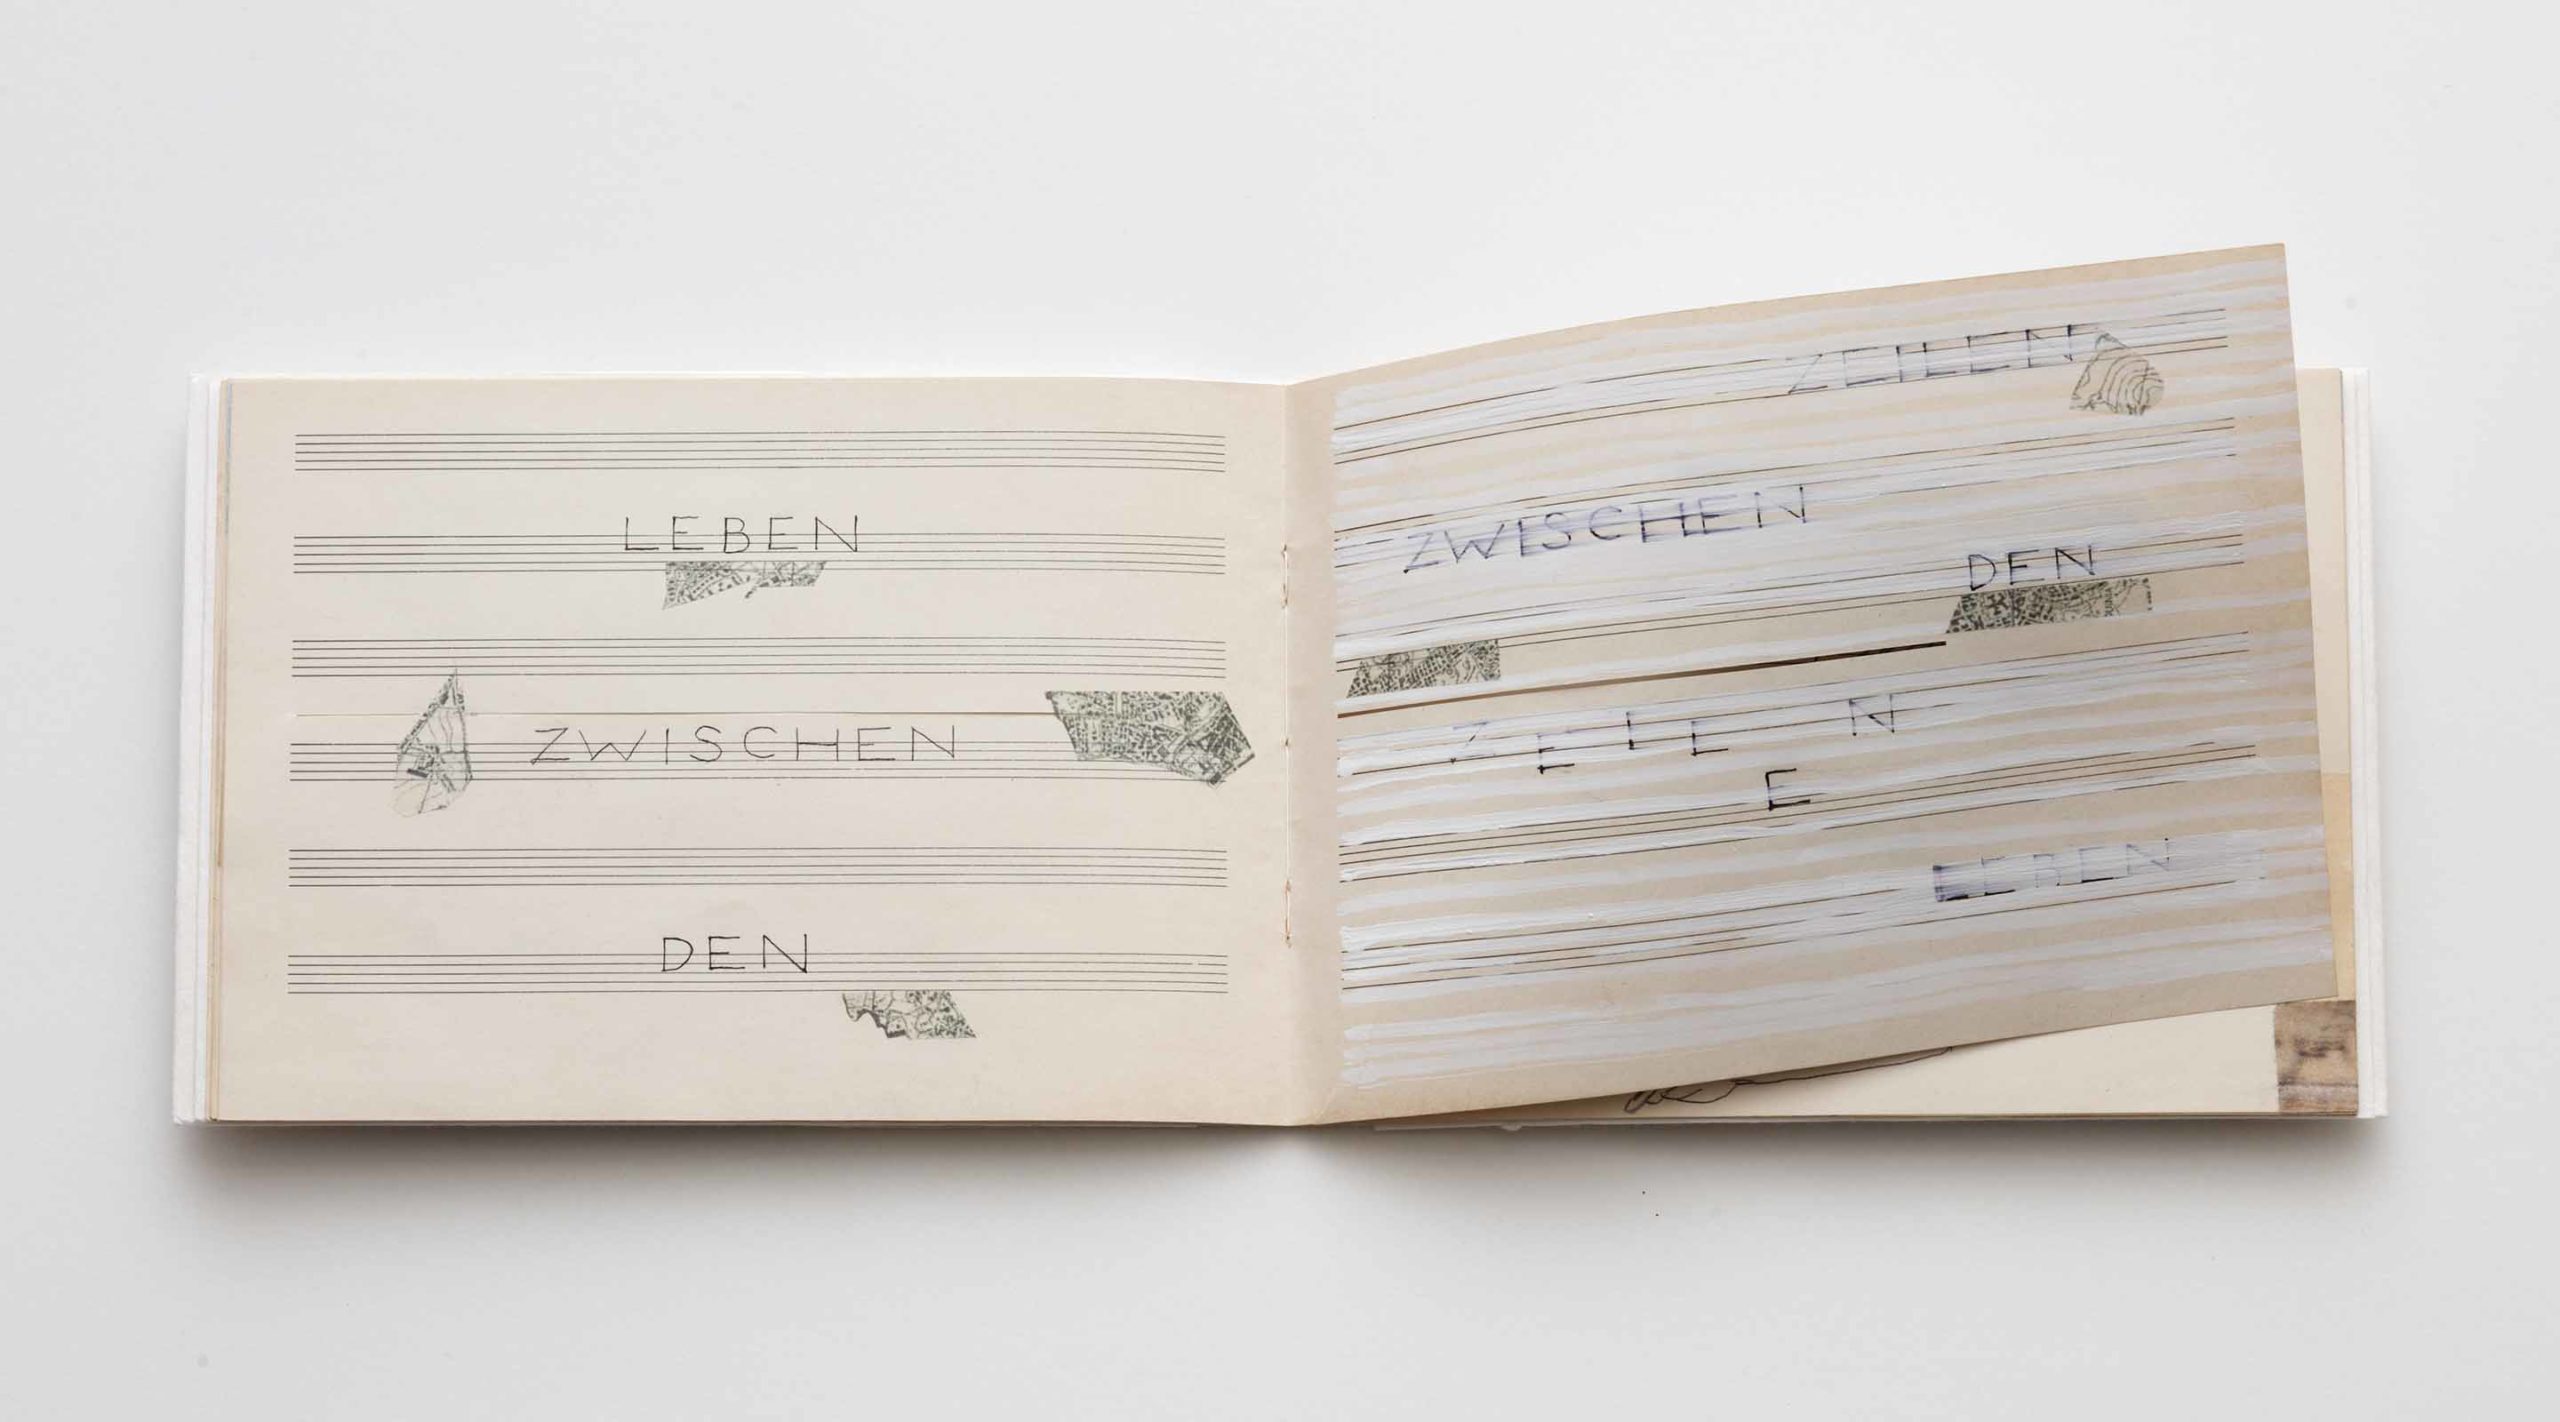 LEBEN
ZWISCHEN
DEN
ZEILEN
ZWISCHEN
DEN
ZEILEN
E
LEBEN